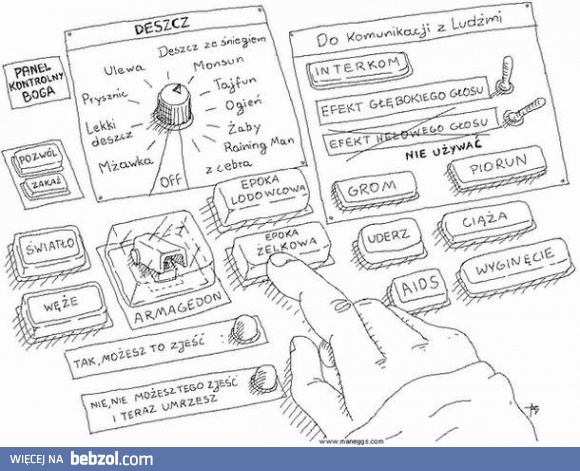 DESZCZ
Deszcz ze śniegiem
Ulewa
Monsun
Prysznic
Tajfun
Ogień
Lekki
deszcz
Żaby
Mżawka
Raining Man
z cebra
Off
PANEL
KONTROLNY
BOGA
POZWÓL
ZAKAŻ
Do Komunikacji z Ludźmi
INTERKOM
EFEKT GŁĘBOKIEGO GŁOSU
EFEKT HELOWEGO GŁOSU
NIE UŻYWAĆ
GROM
PIORUN
EPOKA
LODOWCOWA
EPOKA
ŻELKOWA
UDERZ
CIĄŻA
AIDS
WYGINĘCIE
ŚWIATŁO
WĘŻE
ARMAGEDON
TAK, MOŻESZ TO ZJEŚĆ
NIE, NIE MOŻESZ TEGO ZJEŚĆ
I TERAZ UMRZESZ
www.maneggs.com
WIĘCEJ NA bebzol.com